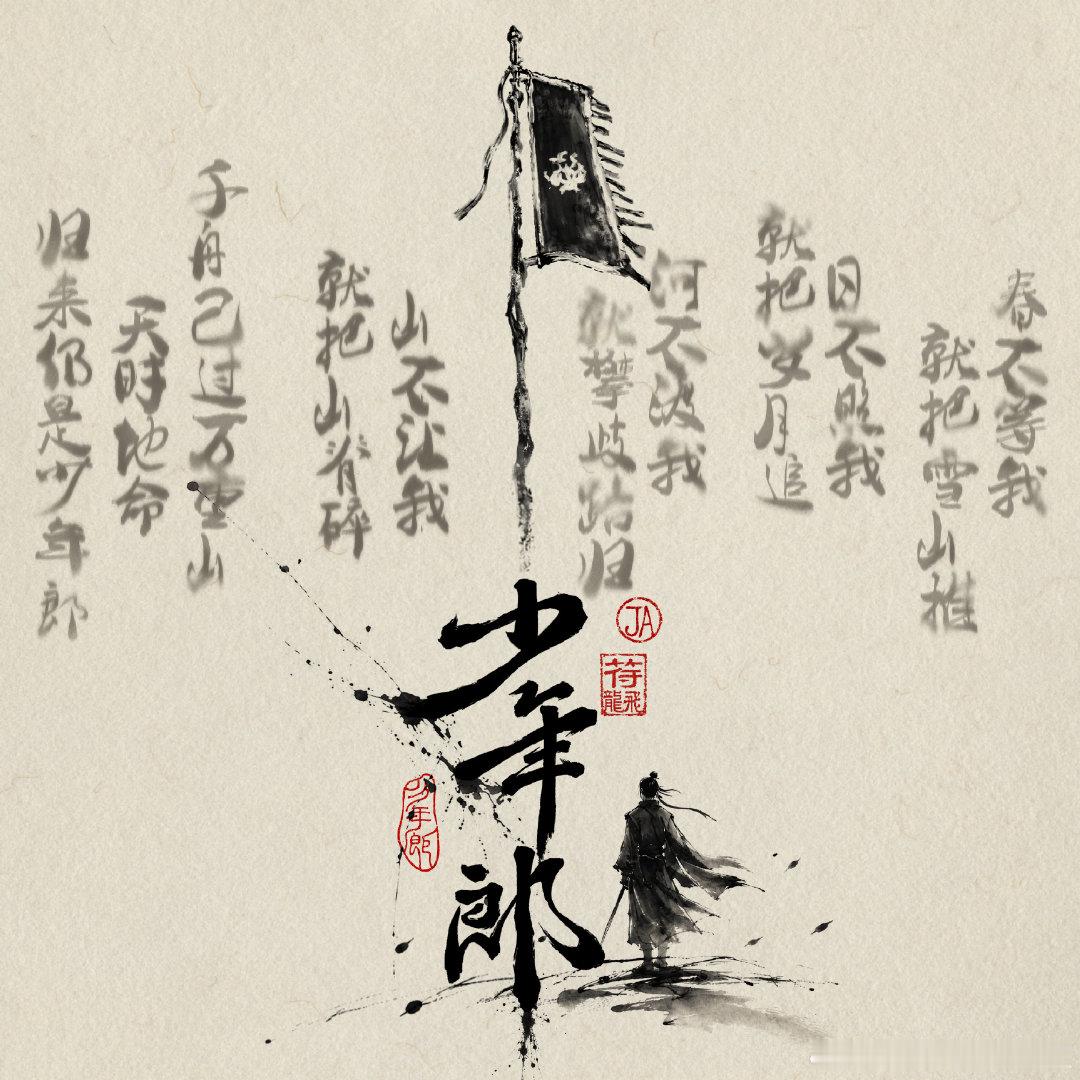 春不等我
就把雪山推
日不照我
就把岁月追
河不渡我
就攀歧路归
山不让我
就把山脊碎
千舟已过万重山
天时地命
归来仍是少年郎
少年郎
JA
符
龍飛
少年郎